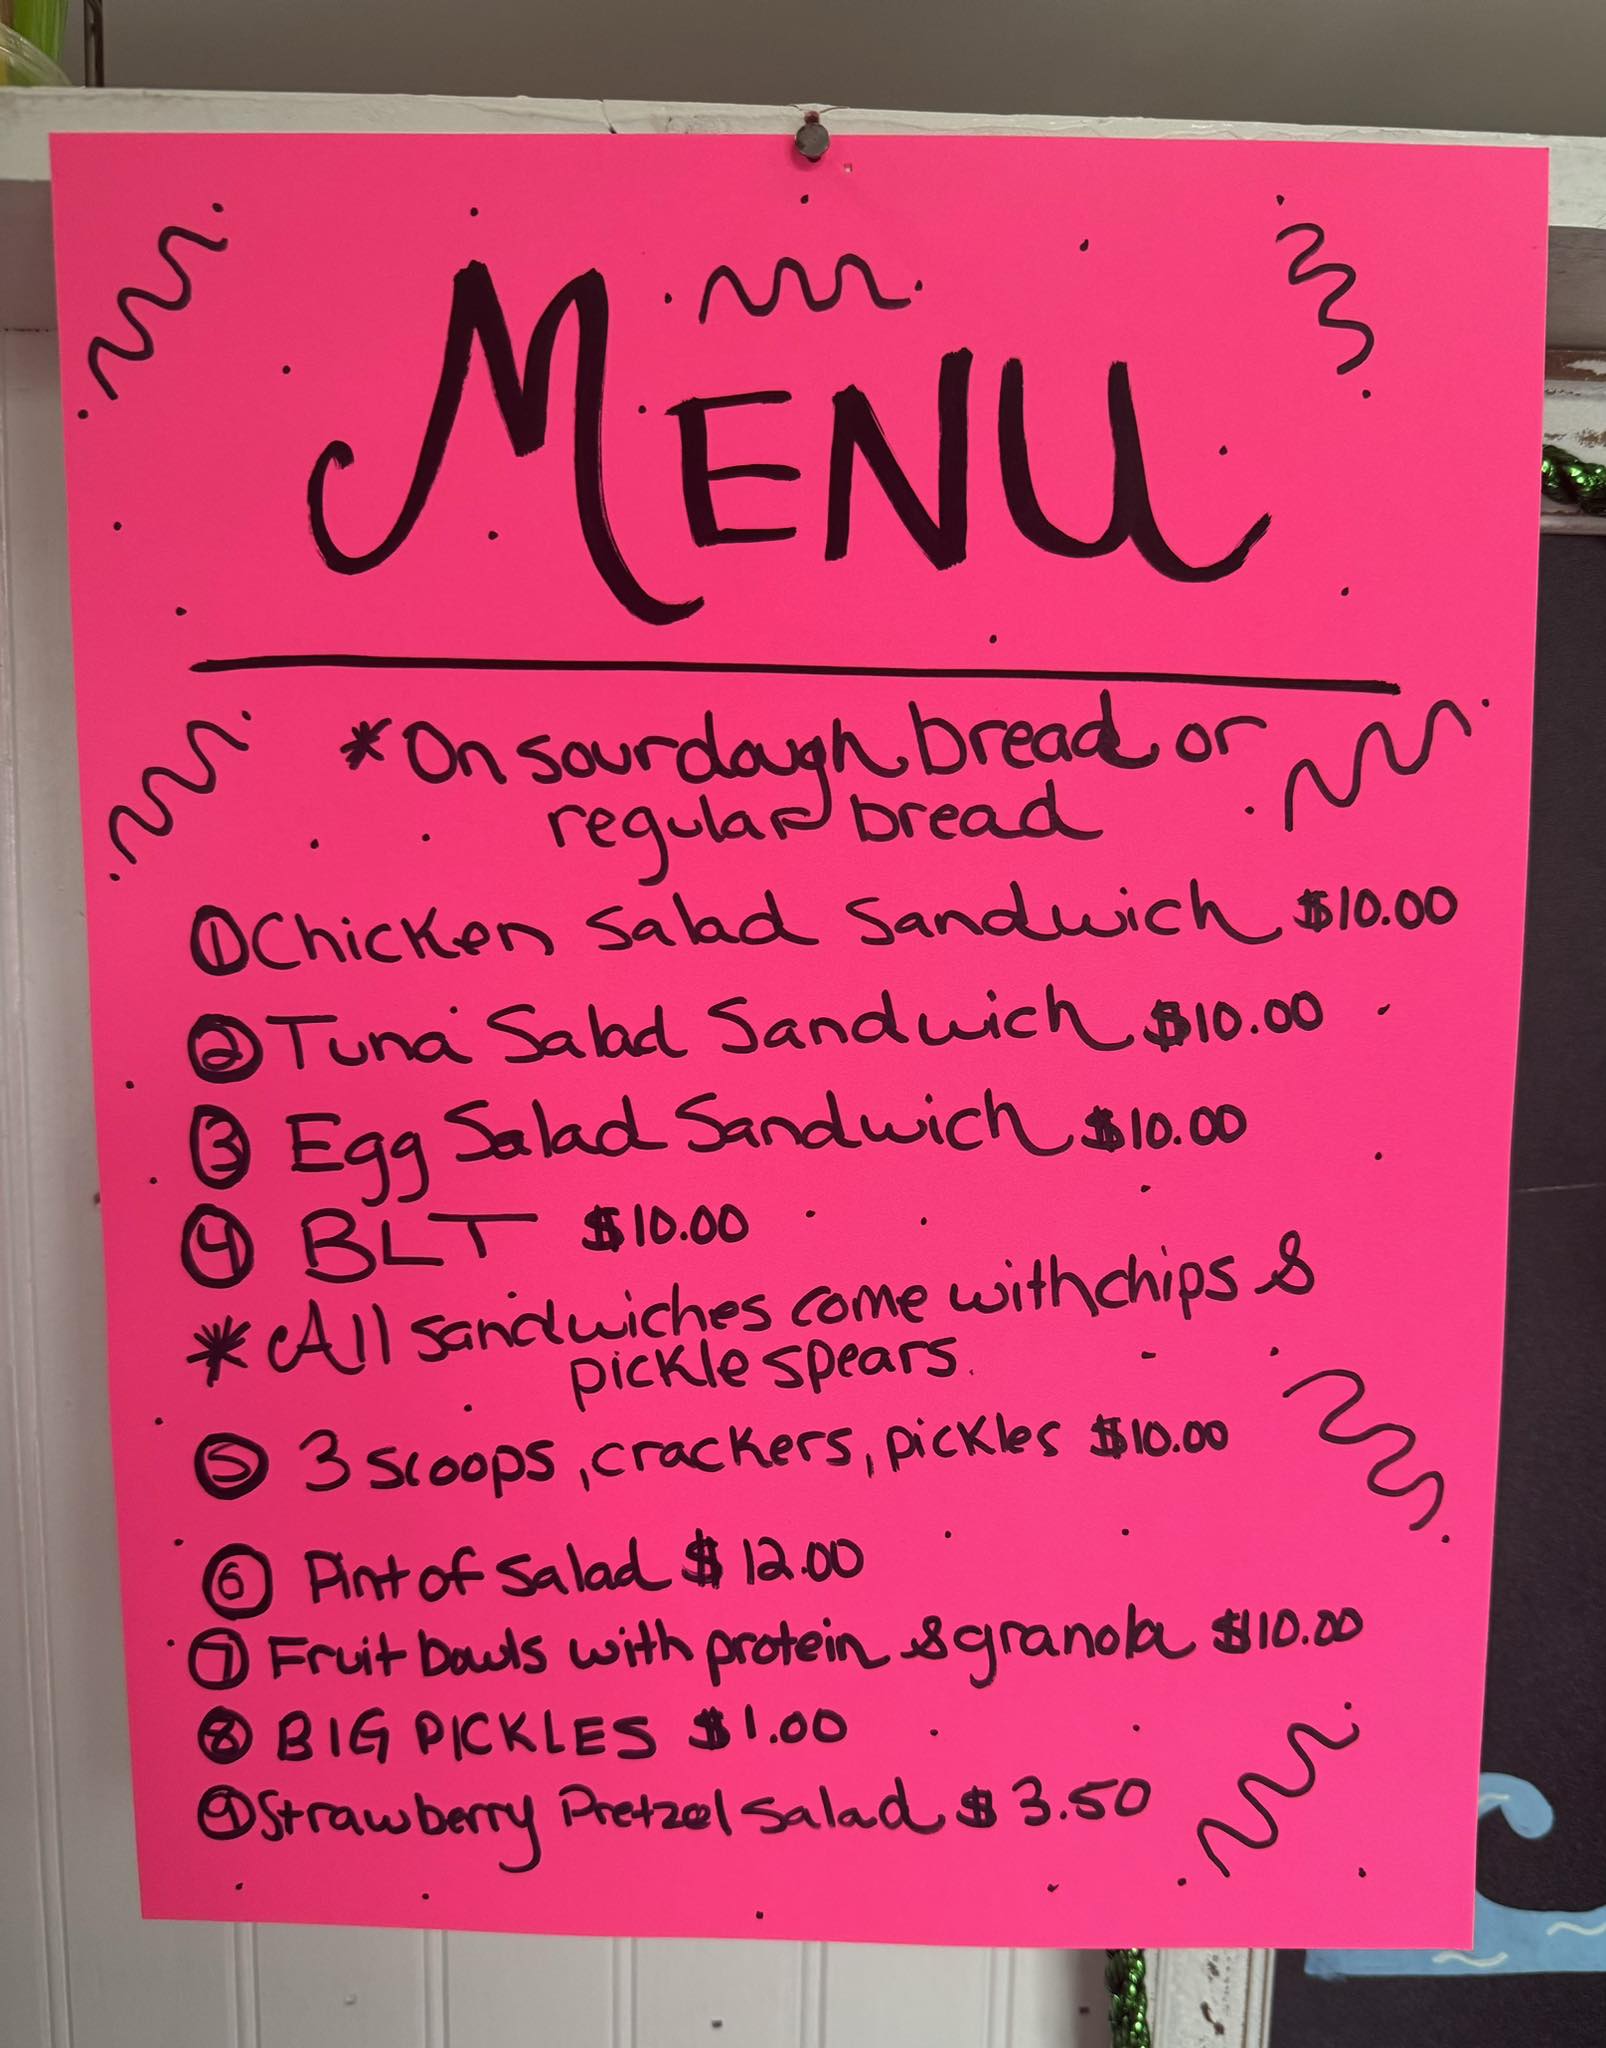 MENU
*On sourdough bread or
regular bread
1 Chicken Salad Sandwich $10.00
2 Tuna Salad Sandwich $10.00
3 Egg Salad Sandwich $10.00
4 BLT $10.00
* All sandwiches come with chips &
pickle spears.
5 3 scoops, crackers, pickles $10.00
6 Pint of salad $12.00
7 Fruit bowls with protein & granola $10.00
8 BIG PICKLES $1.00
9 Strawberry Pretzel salad $3.50